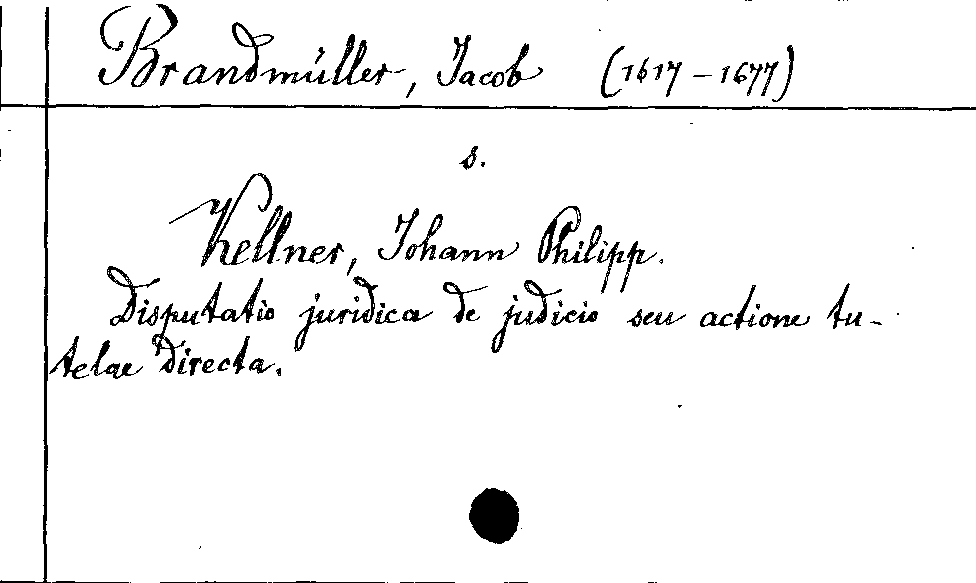 Brandmüller, Jacob (1617-1677)
s.
Kellner, Johann Philipp.
Disputatio juridica de judicio seu actione tu-
telae directa.